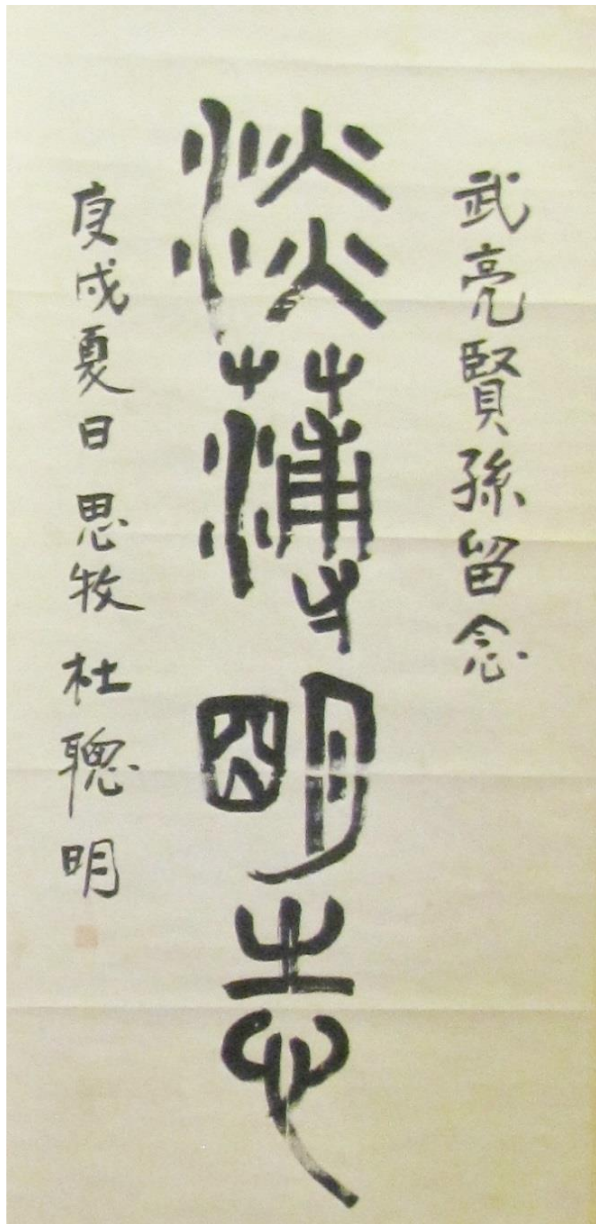 武亮賢孫留念
淡薄明志
庚戌夏日 思牧 杜聰明